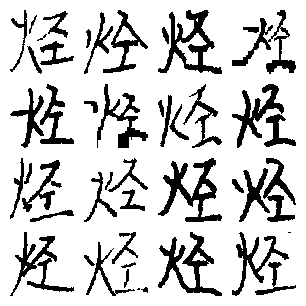 烃烃烃烃
烃烃烃烃
烃烃烃烃
烃烃烃烃